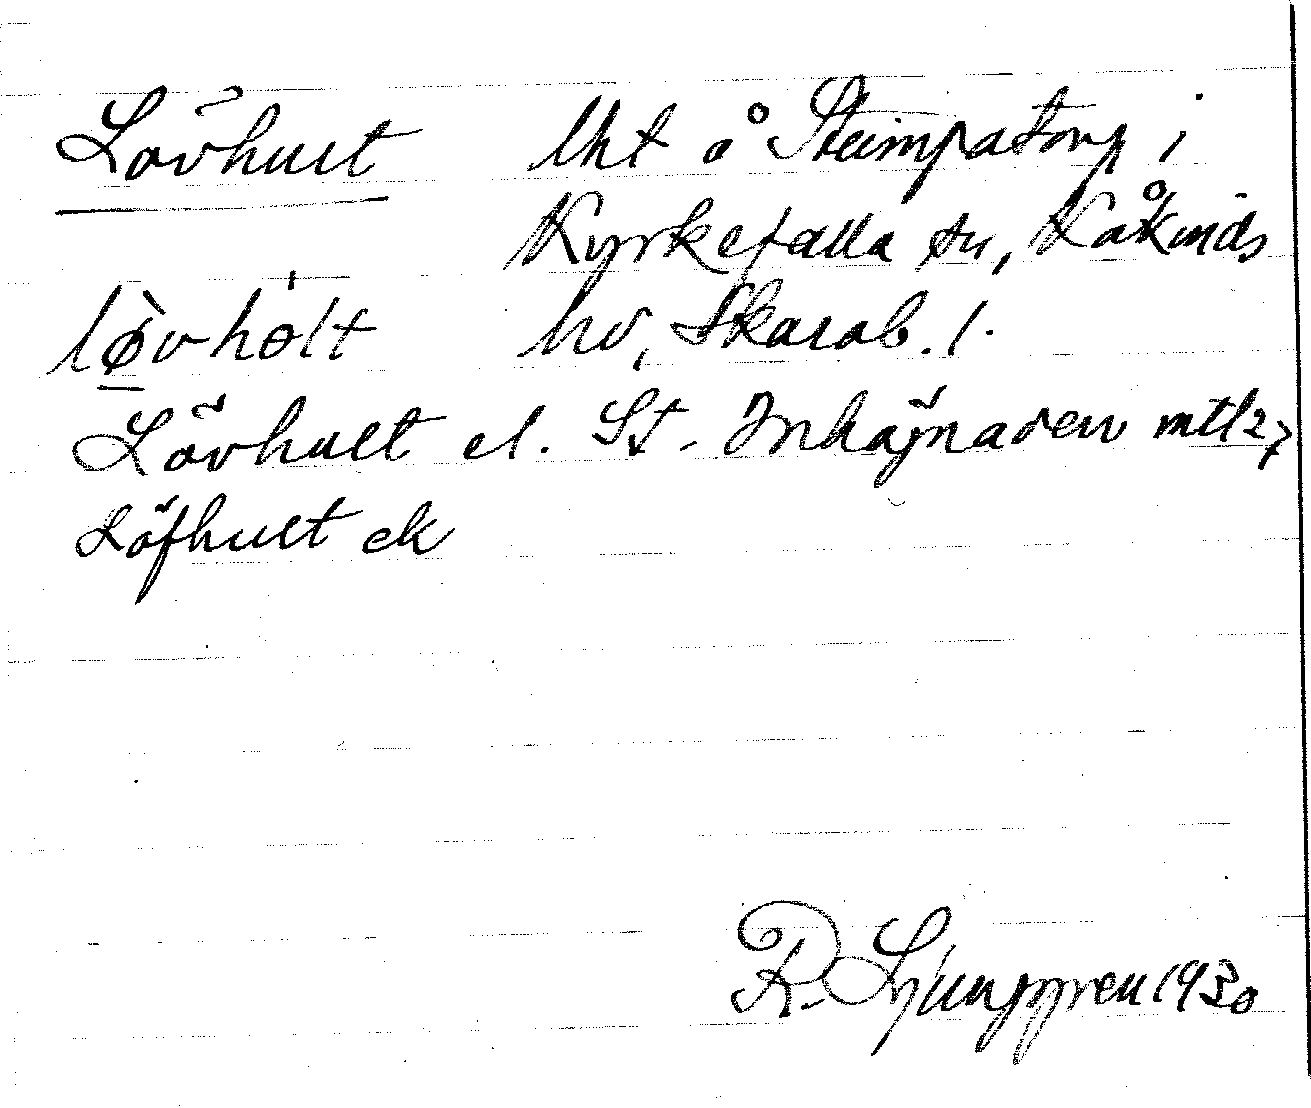 Lövhult lht å Steimpatorp i
Kyrkefalla sn, Kåkinds
lø̀vhòlt hd, Skarab. l.
Lövhult el. St. Inhägnaden mtl 27
Löfhult ek
R. Ljunggren 1930